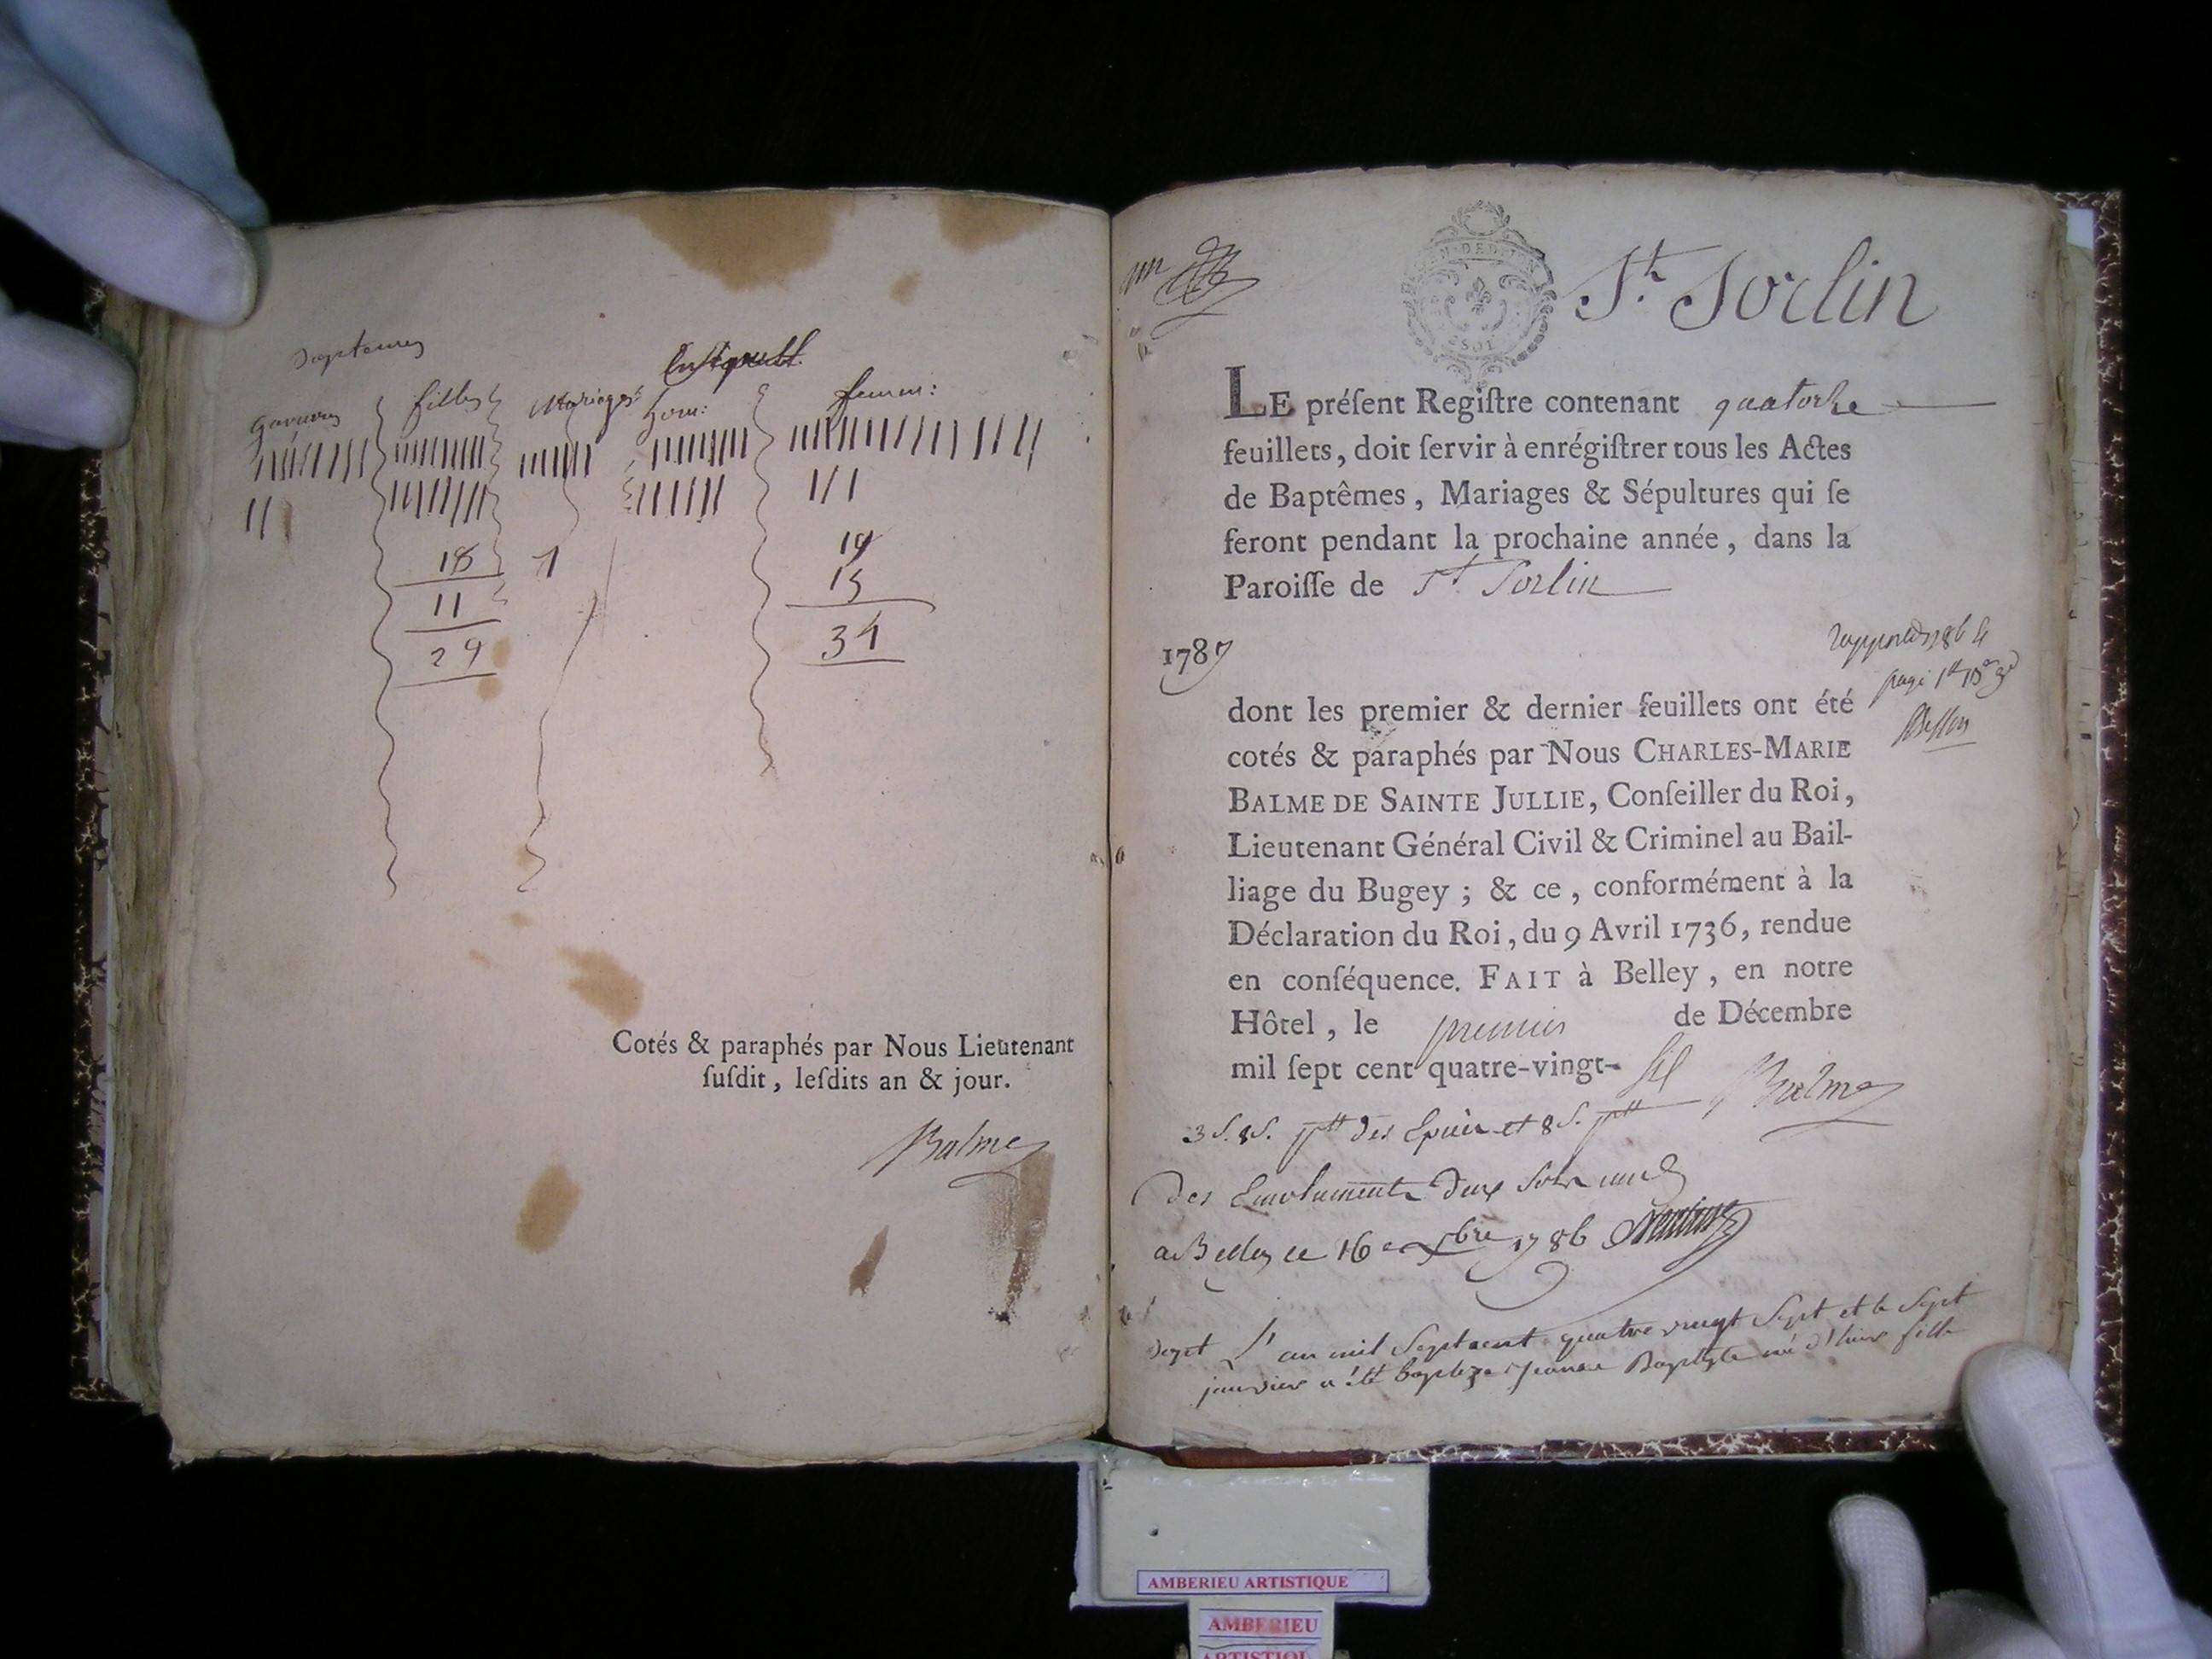 garçons filles mariages hom: femm:
18 1 19
11 15
29 34
Cotés & paraphés par Nous Lieutenant
ſuſdit, leſdits an & jour.
Balme
St. Sorlin
LE préſent Regiſtre contenant quatorze
feuillets, doit ſervir à enrégiſtrer tous les Actes
de Baptêmes, Mariages & Sépultures qui ſe
feront pendant la prochaine année, dans la
Paroiſſe de St. Sorlin
1787
dont les premier & dernier feuillets ont été
cotés & paraphés par Nous CHARLES-MARIE
BALME DE SAINTE JULLIE, Conſeiller du Roi,
Lieutenant Général Civil & Criminel au Bail-
liage du Bugey ; & ce, conformément à la
Déclaration du Roi, du 9 Avril 1736, rendue
en conſéquence. FAIT à Belley, en notre
Hôtel, le premier de Décembre
mil ſept cent quatre-vingt- six Balme
3 s. 8 d. des et 8 s.
Des Emoluments deux sols
a Belley ce 16e Xbre 1786
Bapt L'an mil Septcent quatre vingt Sept et le Sept
janvier a été baptizé Jeanne Baptiste né d'hier fille
AMBERIEU ARTISTIQUE
AMBERIEU
ARTISTIQUE